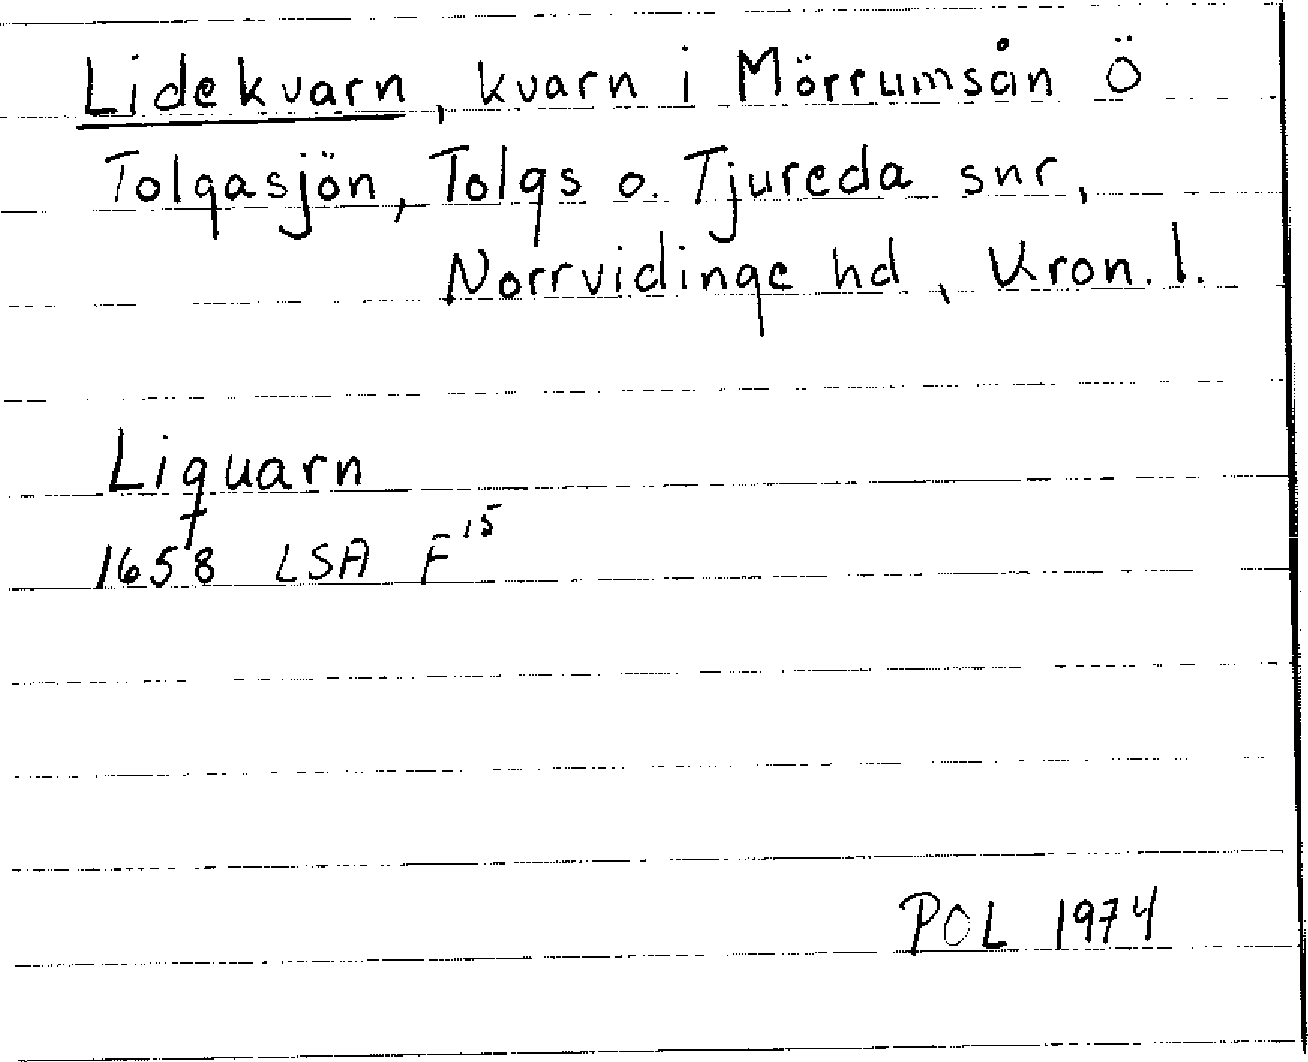 Lidekvarn, kvarn i Mörrumsån Ö
Tolgasjön, Tolgs o. Tjureda snr,
Norrvidinge hd, Kron. l.
Liquarn
1658 LSA F¹⁵
POL 1974